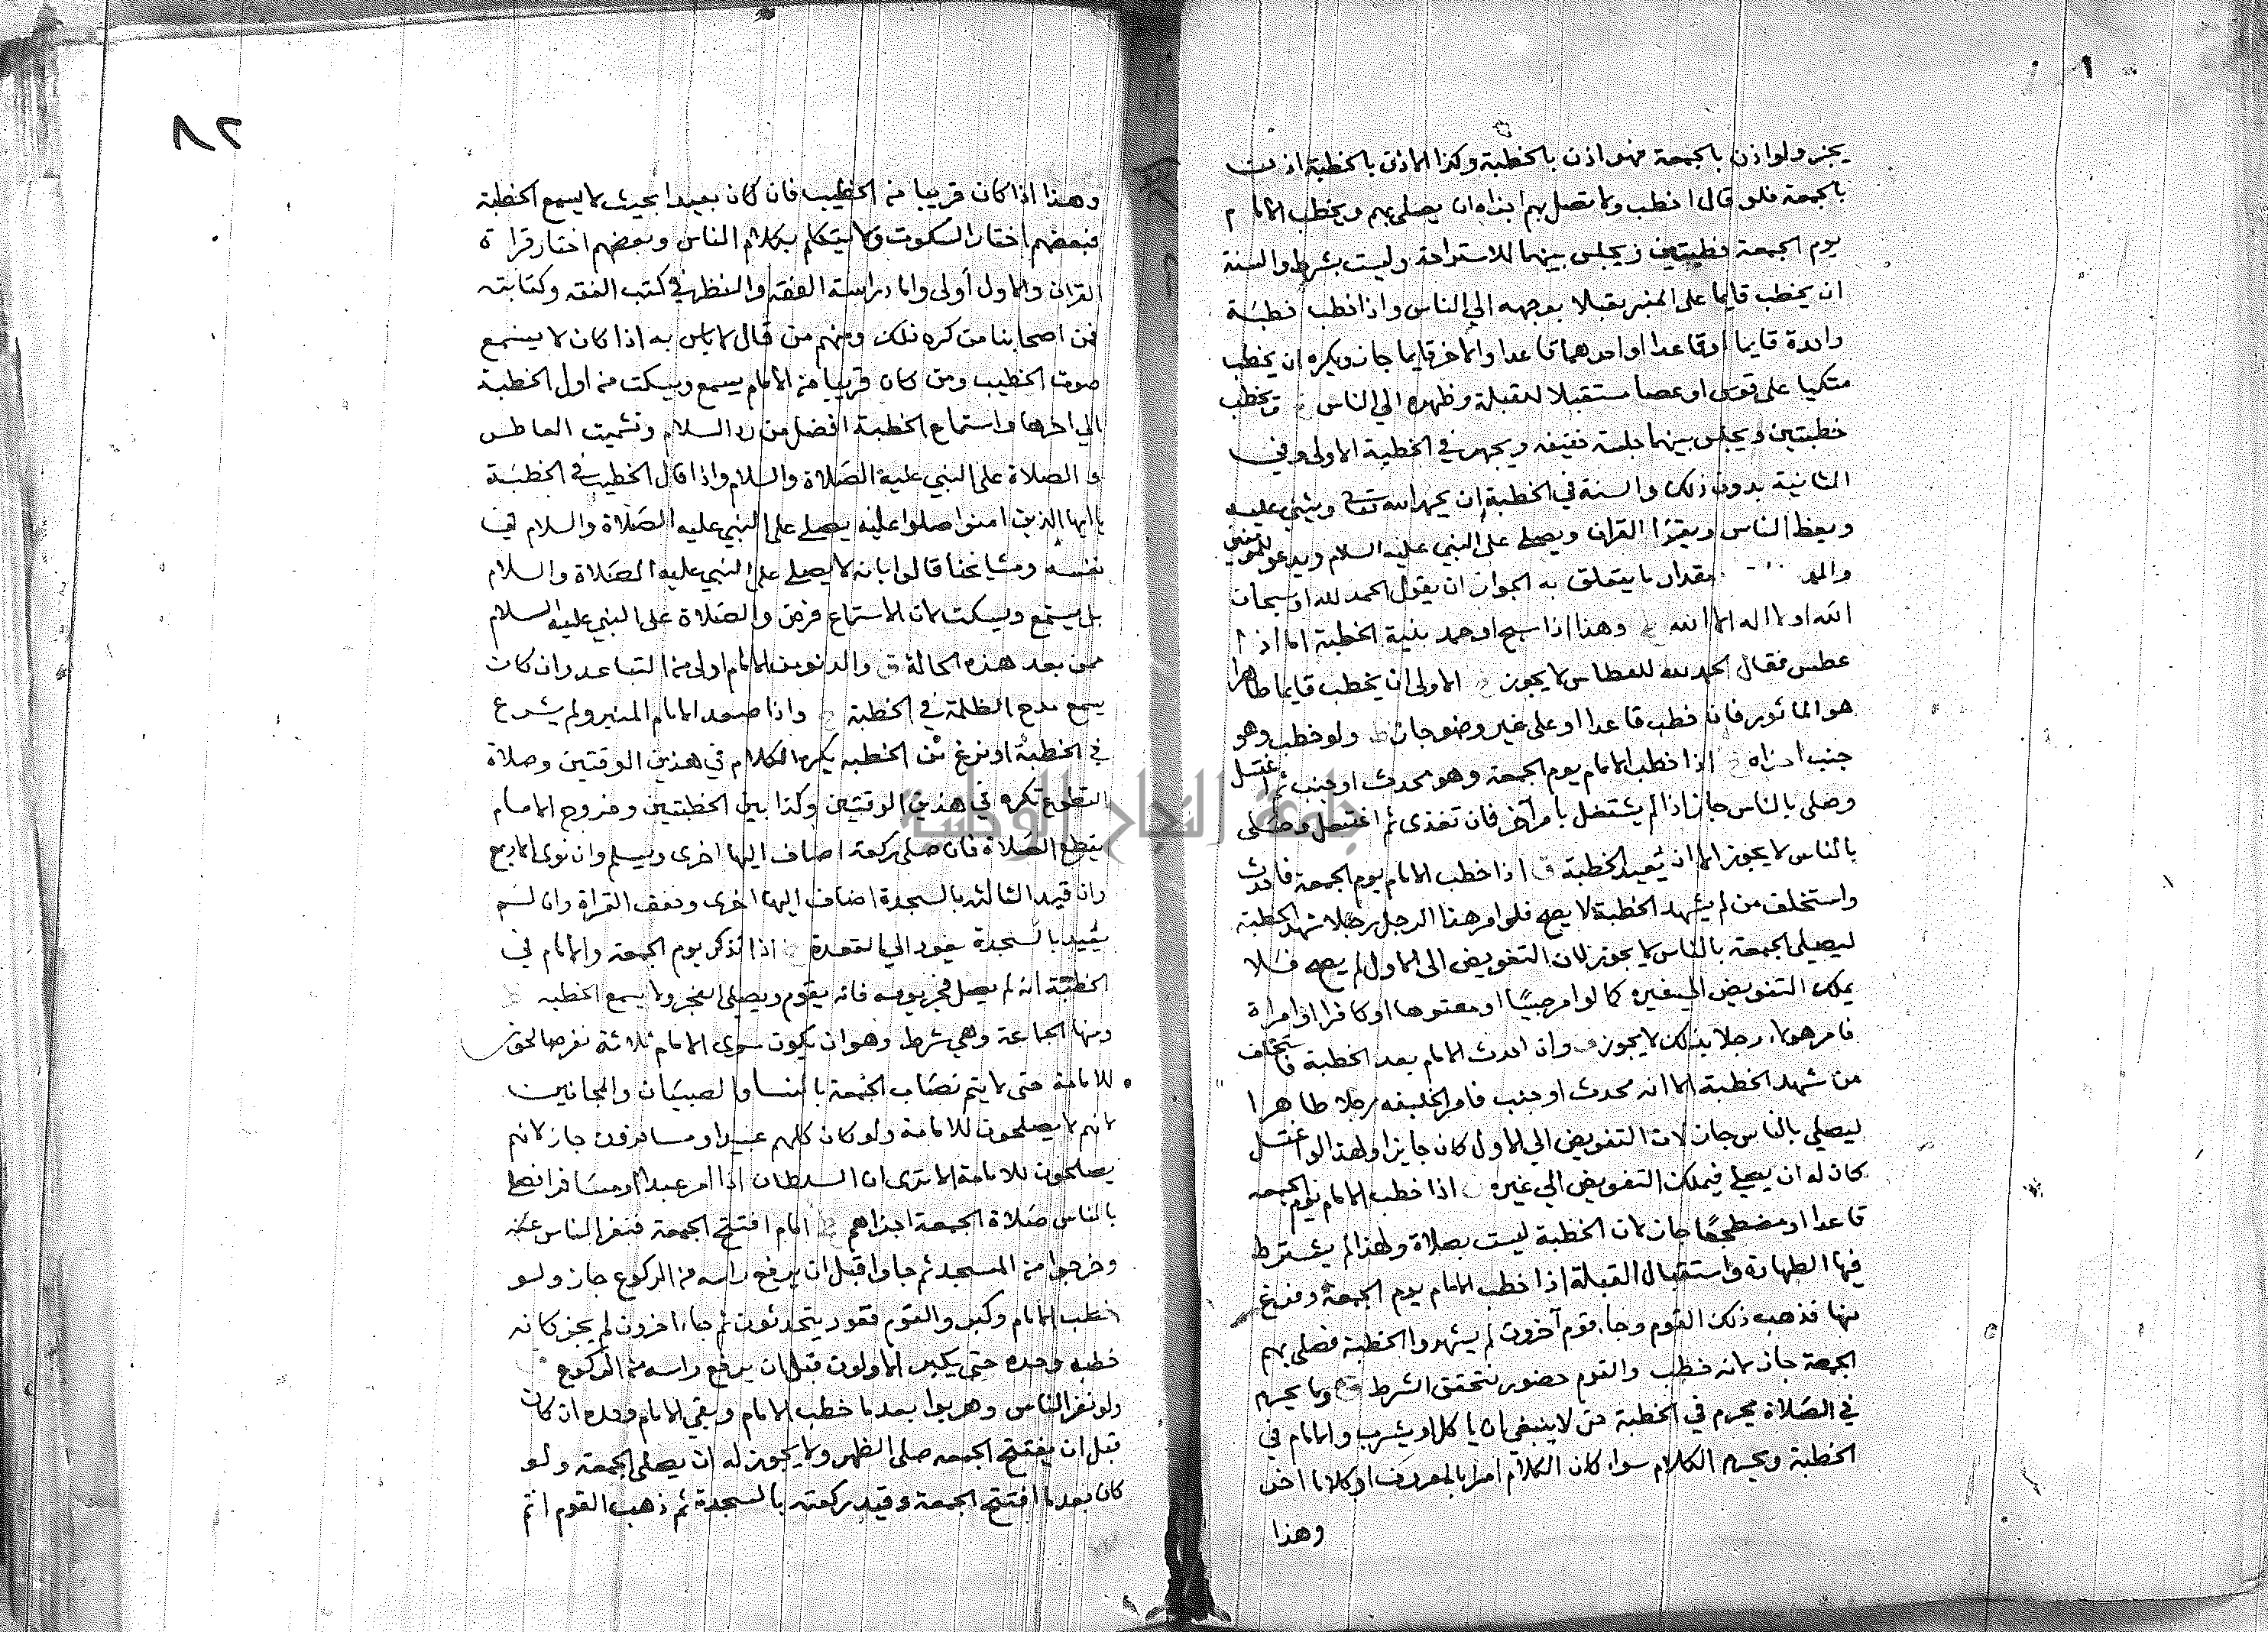 يجز ولو اذن بالجمعة فهو اذن بالخطبة وكذا الاذن بالخطبة اذن
بالجمعة فلو قال اخطب ولا تصل بهم اجزاه ان يصلي بهم ويخطب الامام
يوم الجمعة خطبتين ويجلس بينهما للاستراحة وليست بشرط والسنة
ان يخطب قايما على المنبر مقبلا بوجهه الي الناس واذا خطب خطبة
واحدة قايما او قاعدا او احدهما قاعدا والاخر قايما جاز ويكره ان يخطب
متكيا على قوس او عصا مستقبلا للقبلة وظهره الي الناس يخطب
خطبتين ويجلس بينهما جلسة خفيفه ويجهر في الخطبة الاولى وفي
الثانية بدون ذلك والسنة في الخطبة ان يحمد الله تعالى ويثني عليه
ويعظ الناس ويقرا القران ويصلي على النبي عليه السلام ويدعو للمومنين
مقدار ما يتعلق به الجواز ان يقول الحمد لله او سبحان
الله او لا اله الا الله وهذا اذا سبح او حمد بنية الخطبة اما اذا
عطس فقال الحمد لله للعطاس لا يجوز الاولى ان يخطب قايما طاهرا
هو الماثور فان خطب قاعدا او على غير وضو جاز ولو خطب وهو
جنب اجزاه اذا خطب الامام يوم الجمعة وهو محدث او جنب ثم اغتسل
وصلى بالناس جاز اذا لم يشتغل بامر آخر فان تغذى ثم اغتسل وصلى
بالناس لا يجوز الا ان يعيد الخطبة ق اذا خطب الامام يوم الجمعة فاحدث
واستخلف من لم يشهد الخطبة لا يصح فلو امر هذا الرجل رجلا شهد الخطبة
ليصلي الجمعة بالناس لا يجوز لان التفويض الى الاول لم يصح فلا
يملك التفويض الي غيره كما لو امر صبيا او معتوها او كافرا او امراة
فامر هولاء رجلا بذلك لا يجوز وان احدث الامام بعد الخطبة فاستخلف
من شهد الخطبة الا انه محدث او جنب فامر الخليفه رجلا طاهرا
ليصلي بالناس جاز لان التفويض الي الاول كان جايزا ولهذا لو اغتسل
كان له ان يصلي فيملك التفويض الي غيره اذا خطب الامام يوم الجمعة
قاعدا او مضطجعا جاز لان الخطبة ليست بصلاة ولهذا لم يشترط
فيها الطهارة واستقبال القبلة اذا خطب الامام يوم الجمعة وفرغ
منها فذهب ذلك القوم وجاء قوم آخرون لم يشهدوا الخطبة فصلى بهم
الجمعة جاز لانه خطب والقوم حضور فتحقق الشرط وما يحرم
في الصلاة يحرم في الخطبة حتى لا ينبغي ان ياكل او يشرب والامام في
الخطبة ويحرم الكلام سواء كان الكلام امرا بالمعروف او كلاما اخر
وهذا
٨٢
وهذا اذا كان قريبا من الخطيب فان كان بعيدا بحيث لا يسمع الخطبة
فبعضهم اختار السكوت ولا يتكلم بكلام الناس وبعضهم اختار قراة
القران والاول أولى واما دراسة الفقه والنظر في كتب الفقه وكتابته
فمن اصحابنا من كره ذلك ومنهم من قال لا باس به اذا كان لا يسمع
صوت الخطيب ومن كان قريبا من الامام يسمع ويسكت من اول الخطبة
الي اخرها واستماع الخطبة افضل من رد السلام وتشميت العاطس
و الصلاة على النبي علية الصلاة والسلام واذا قال الخطيب في الخطبة
يا ايها الذين امنوا صلوا عليه يصلي على النبي عليه الصلاة والسلام في
نفسه ومشايخنا قالوا بانه لا يصلي على النبي عليه الصلاة والسلام
بل يستمع ويسكت لان الاستماع فرض والصلاة على النبي عليه السلام
تمكن بعد هذه الحالة ق والدنو من الامام اولى من التباعد وان كان
يسمع مدح الظلمة في الخطبة واذا صعد الامام المنبر ولم يشرع
في الخطبة او فرغ من الخطبه يكره الكلام في هذين الوقتين وصلاة
التطوع تكره في هذين الوقتين وكذا بين الخطبتين وخروج الامام
يقطع الصلاة فان صلى ركعة اضاف اليها اخرى ويسلم وان نوى الاربع
وان قيد الثالثه بالسجدة اضاف اليها اخرى وخفف القراة وان لم
يقيد بالسجدة يعود الي القعدة اذا تذكر يوم الجمعة والامام في
الخطبة انه لم يصل فجر يومه فانه يقوم ويصلي الفجر ولا يسمع الخطبه
ومنها الجماعة وهي شرط وهو ان يكون سوى الامام ثلاثة نفر صالحو
للامامة حتى لا يتم نصاب الجمعة بالنسا والصبيان والمجانين
لانهم لا يصلحون للامامة ولو كان كلهم عبيدا ومسافرون جاز لانهم
يصلحون للامامة الا ترى ان السلطان اذا امر عبدا او مسافرا فصلى
بالناس صلاة الجمعة اجزاهم امام افتتح الجمعة فنفر الناس عنه
وخرجوا من المسجد ثم جاوا قبل ان يرفع راسه من الركوع جاز ولو
خطب الامام وكبر والقوم قعود يتحدثون ثم جاء اخرون لم يجز كانه
خطب وحده حتى يكبر الاولون قبل ان يرفع راسه من الركوع
ولو نفر الناس وهربوا بعدما خطب الامام وبقي الامام وحده ان كان
قبل ان يفتتح الجمعه صلى الظهر ولا يجوز له ان يصلي الجمعة ولو
كان بعدما افتتح الجمعة وقيد ركعته بالسجدة ثم ذهب القوم اتم
جامعة النجاح الوطنية